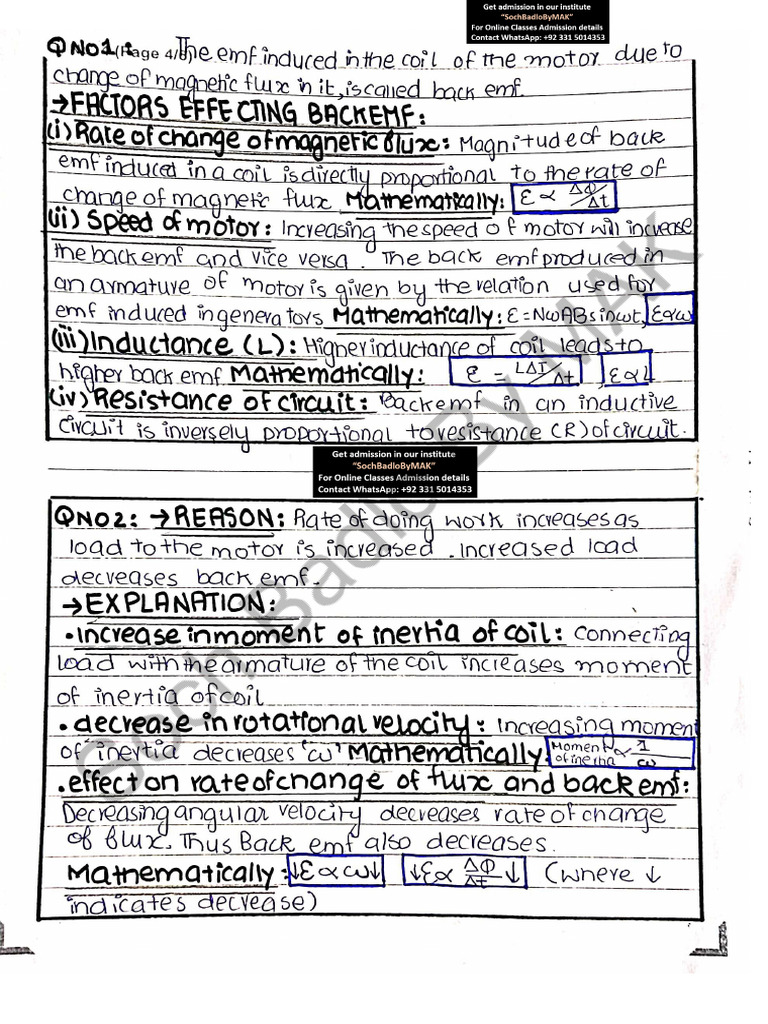 Get admission in our institute
"SochBadloByMAK"
For Online Classes Admission details
Contact WhatsApp: +92 331 5014353
QNO1: (Page 4/6) The emf induced in the coil of the motor due to
change of magnetic flux in it, is called back emf.
→FACTORS EFFECTING BACKEMF:
(i) Rate of change of magnetic flux: Magnitude of back
emf induced in a coil is directly proportional to the rate of
change of magnetic flux Mathematically: ε ∝ ΔΦ/Δt
(ii) Speed of motor: Increasing the speed of motor will increase
the back emf and vice versa. The back emf produced in
an armature of motor is given by the relation used for
emf induced in generators Mathematically: ε=NωABsinωt, ε∝ω
(iii) Inductance (L): Higher inductance of coil leads to
higher back emf Mathematically: ε = LΔI/Δt , ε∝L
(iv) Resistance of circuit: Back emf in an inductive
circuit is inversely proportional to resistance (R) of circuit.
Get admission in our institute
"SochBadloByMAK"
For Online Classes Admission details
Contact WhatsApp: +92 331 5014353
QNO2: →REASON: Rate of doing work increases as
load to the motor is increased. Increased load
decreases back emf.
→EXPLANATION:
•increase in moment of inertia of coil: Connecting
load with the armature of the coil increases moment
of inertia of coil
•decrease in rotational velocity: Increasing moment
of inertia decreases 'ω' Mathematically: Moment of inertia ∝ 1/ω
•effect on rate of change of flux and back emf:
Decreasing angular velocity decreases rate of change
of flux. Thus Back emf also decreases.
Mathematically: ↓ε∝ω↓ ↓ε∝ ΔΦ/Δt ↓ (where ↓
indicates decrease)
Soch Badlo By MAK